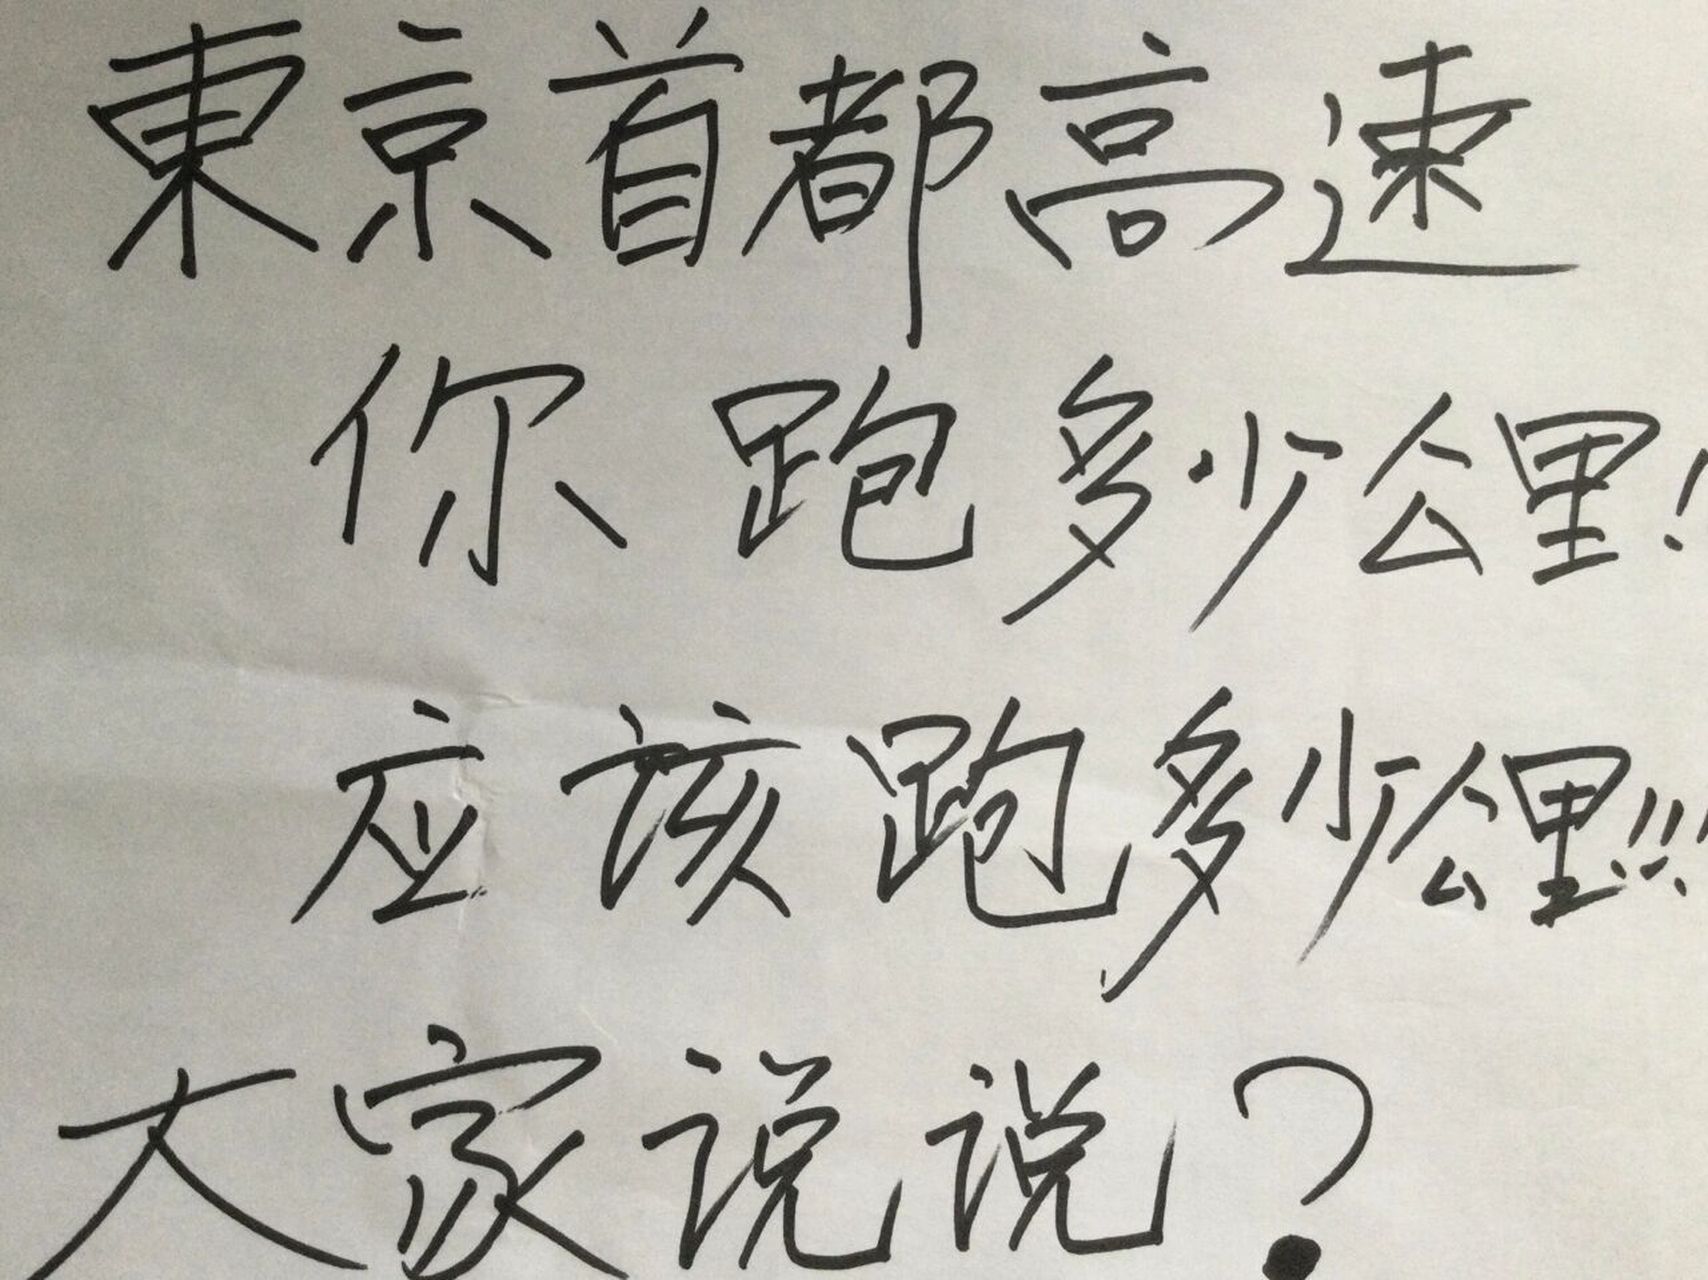 東京首都高速
你跑多少公里!
应该跑多少公里!!!
大家说说?